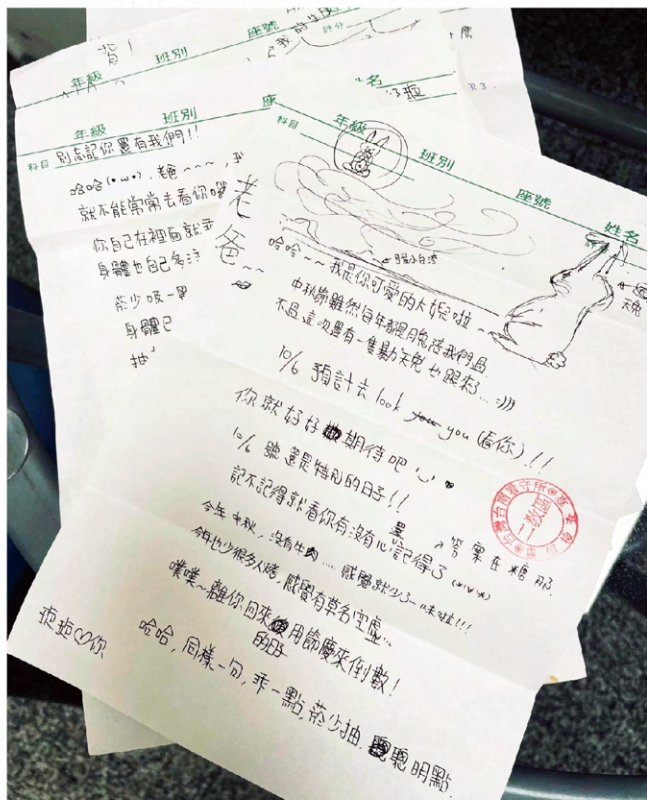 背！
年級 班別 座號 評分
年級 班別 座
科目 別忘記你還有我們!!
哈哈(•ω•), 老爸~~~,
就不能常常去看你囉
你自己在裡面就乖
身體也自己多注
菸少吸一點
身體已
抽
年級 班別 座號 姓名
科目
老爸~~
哈哈~~我是你可愛的大
中秋節雖然每年都是月兔陪我們過
不過這次還有一隻暴力天兔也跟來了...:)))
天兔
10/6 預計去 look you (看你)!!!
你就好好期待吧
10/6 號還是特別的日子!!
記不記得就看你有沒有心記得了
答案在糖
今年中秋,沒有牛肉.... 感覺就少了一味啦!!!
今年也少很多人烤,感覺有草名空虛...
噗噗~離你回來的日子用節慶來倒數!
哈哈,同樣一句,乖一點,菸少抽.聰明點.
♡你